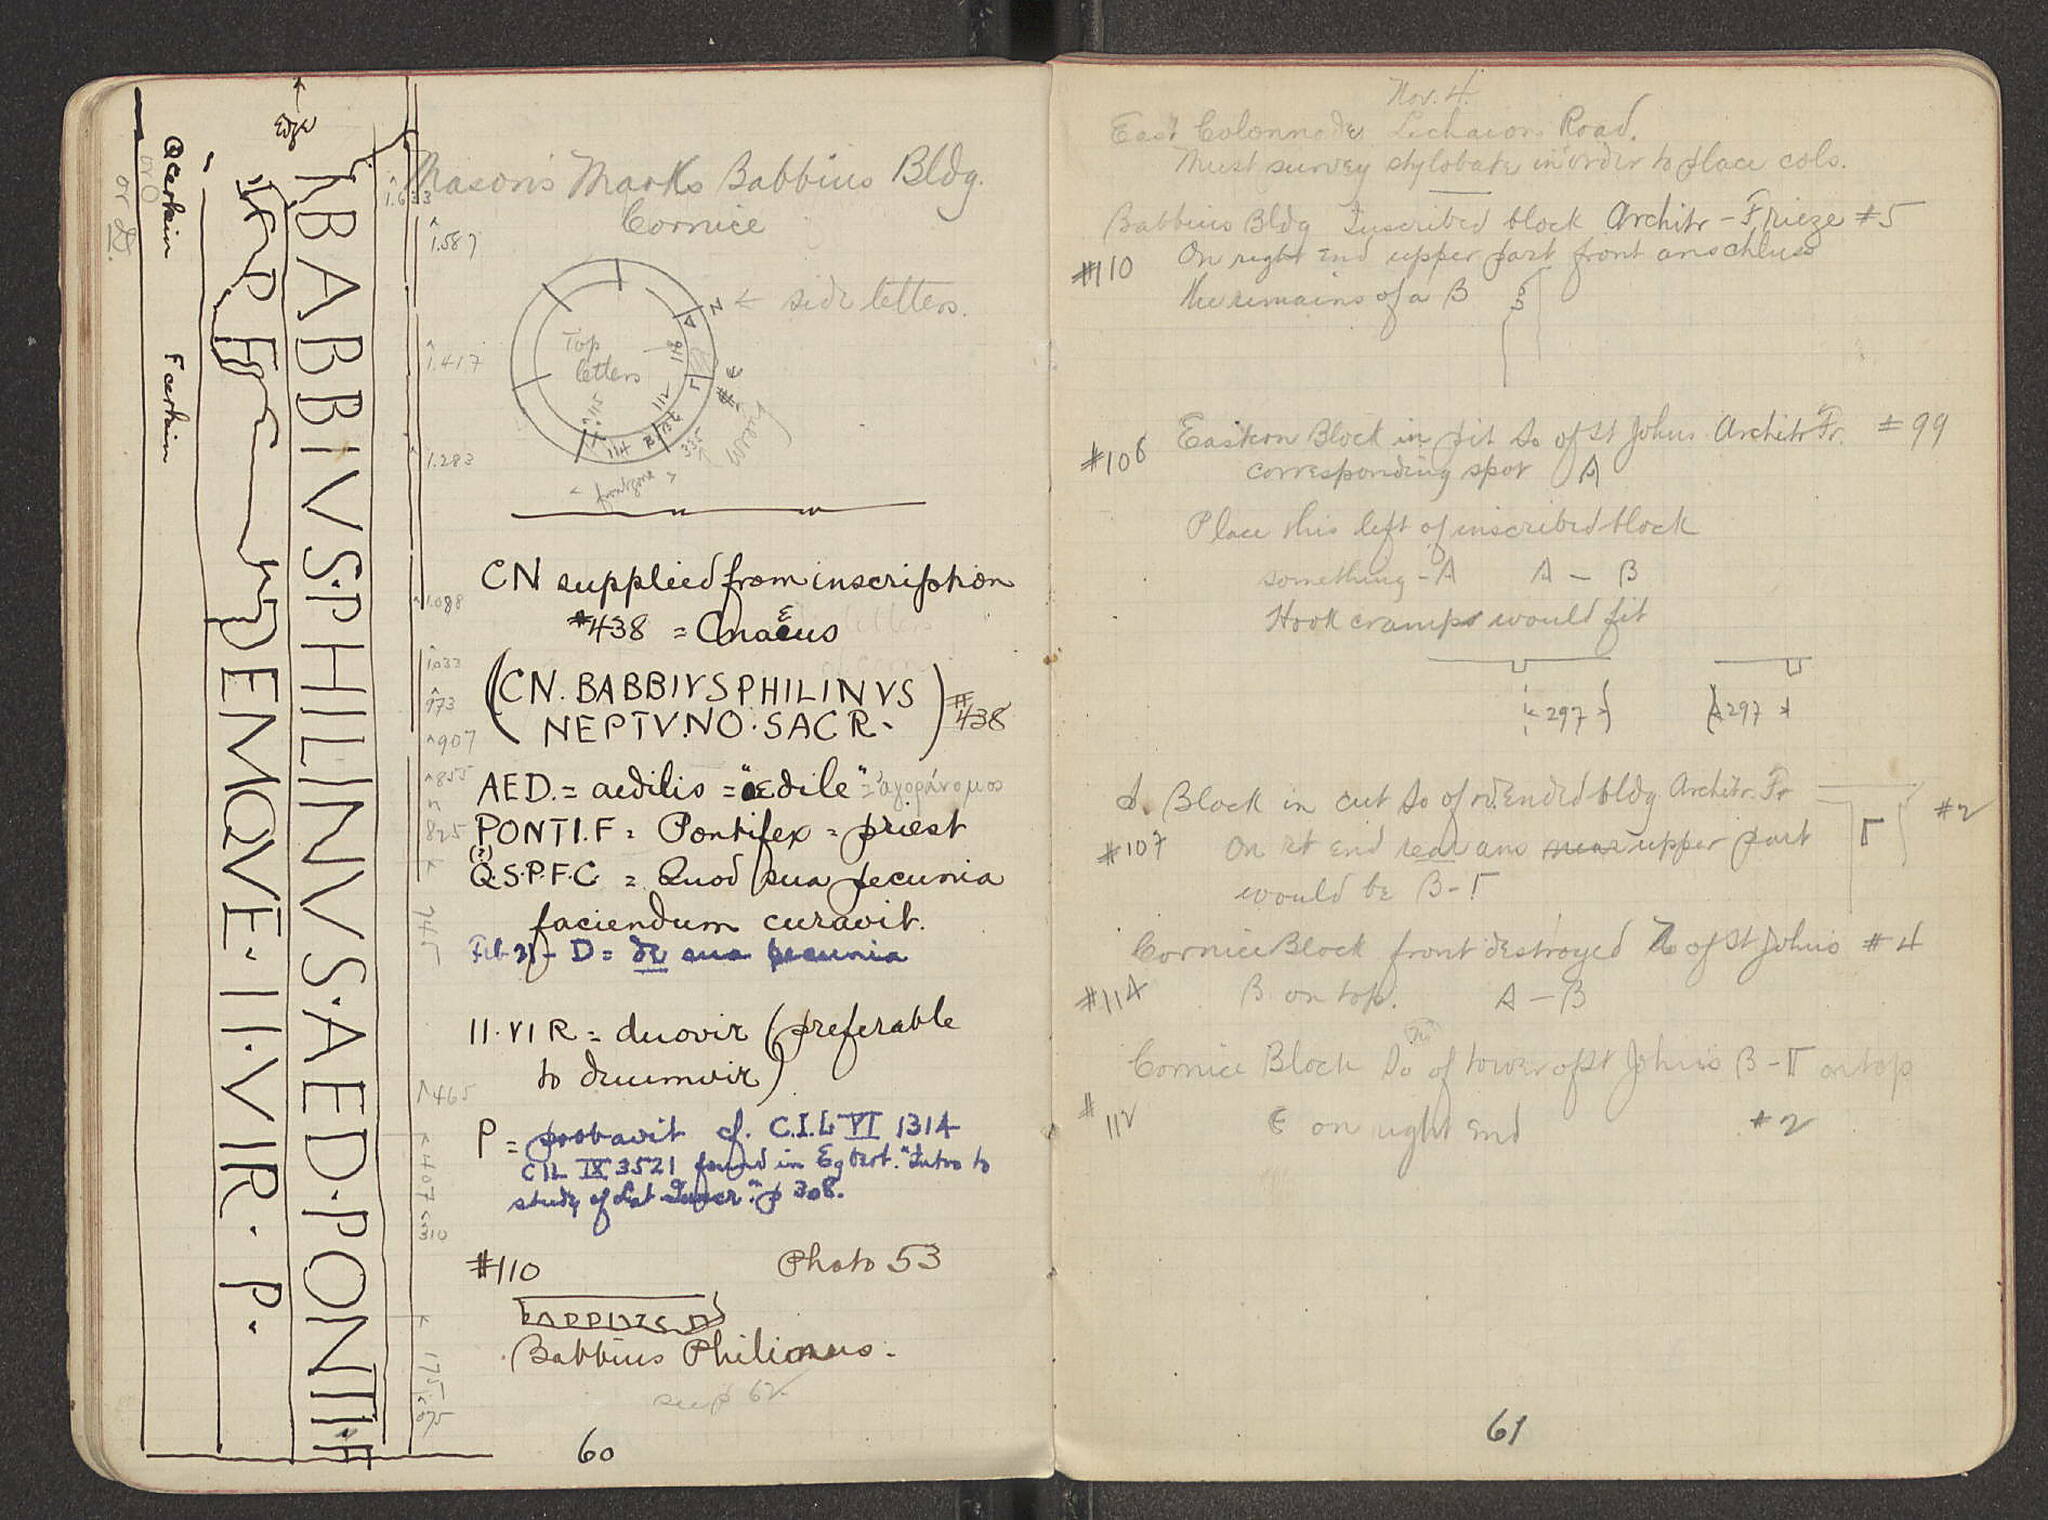 BABBIVS·PHILINVS·AED·PONTI·F
DEMQVE·II·VIR·P·
Q certain
F certain
or O
or D.
Edge
1.633
1.587
1.417
1.283
1.088
1.033
973
907
855
825
745
465
407
310
175
075
Mason's Marks Babbius Bldg.
Cornice
← side letters.
Top
letters
A
N
116
Γ
E
112
B
114
115
335
front zone
CN supplied from inscription
#438 = Cnaeus
(CN. BABBIVS PHILINVS
NEPTV.NO·SACR·) #438
AED. = aedilis = "aedile" = ἀγοράνομος
PONTI.F = Pontifex = priest
(?)
Q.S.P.F.C = Quod sua pecunia
faciendum curavit.
Feb 21 - D = de sua pecunia
II·VIR = duovir (preferable
to duumvir)
P = probavit cf. C.I.L VI 1314
CIL IX 3521 found in Egbert. "Intro to
study of Lat Inscr." p 308.
#110 Photo 53
Babbius Philinus.
see p 62
60
Nov. 4.
East Colonnade Lechaion Road.
Must survey stylobate in order to place cols.
Babbius Bldg Inscribed block Architr - Frieze #5
#110 On right end upper part front anschluss
the remains of a B
B
#106 Eastern Block in pit So of St Johns Architr Fr. #99
corresponding spot A
Place this left of inscribed block
something - A A - B
Hook cramps would fit
297 297
Block in cut So of rd Ended bldg Architr. Fr #2
#107 On rt end rear ans near upper part
Γ
would be B - Γ
Cornice Block front destroyed No of St Johns #4
#114 B on top. A - B
Cornice Block So of tower of St Johns B - Γ on top
#112 E on right end #2
61